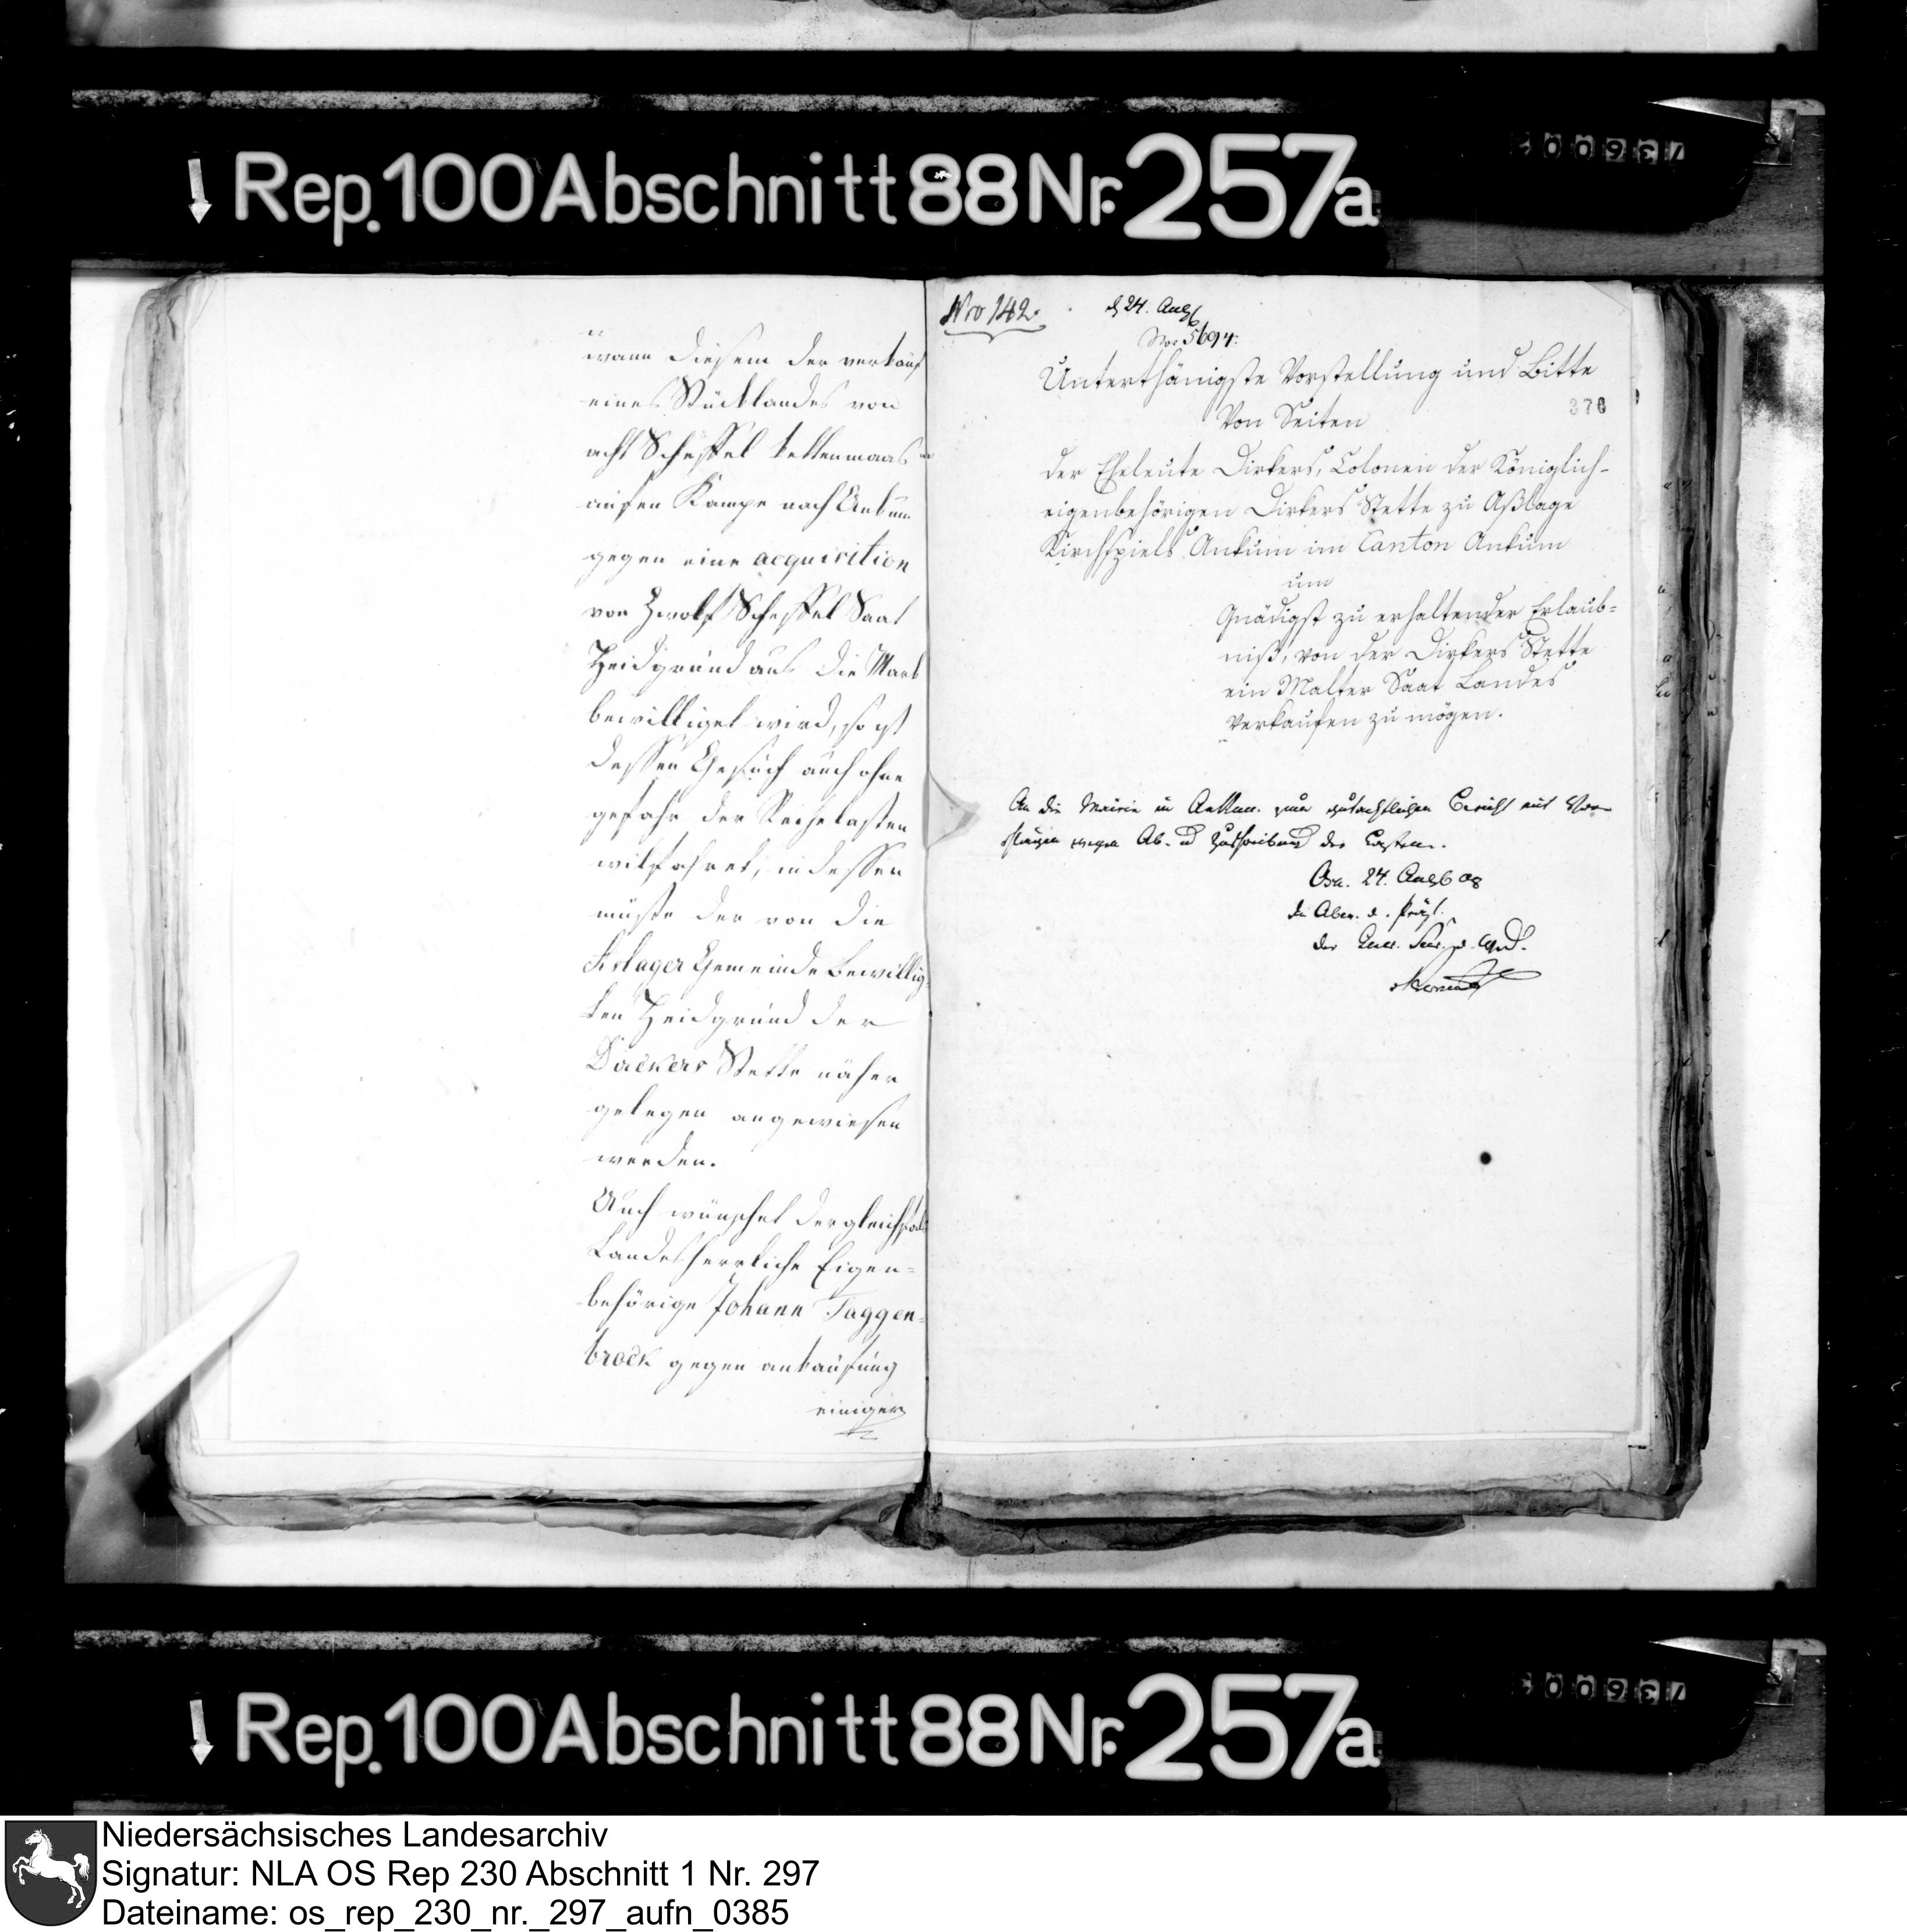 Rep. 100 Abschnitt 88 Nr. 257a
wann diesem der verkauf
eines Stücklandes von
acht Scheffel
aufen Kampe nach Ankum
gegen eine acquisition
von Zwolf Scheffel Saat
Heidgrund aus die Mark
bewilliget wird, so ist
dessen Gesuch auch ohne
gefahr der Reihelasten
wilfahret, indessen
müste der von die
Aslager Gemeinde bewillig-
ten Heidgrund der
Dirkers Stette näher
gelegen angewiesen
werden.
Auch wünschet der gleichfals
Landesherrliche Eigen=
behörige Johann Taggen=
brock gegen ankaufung
einiger
Nro 142.
d 24. Aug
Nro 5694.
Unterthänigste Vorstellung und Bitte
Von Seiten
370
der Eheleute Dirkers, Colonen der Königlich-
eigenbehörigen Dirkers Stette zu Aßlage
Kirchspiels Ankum im Canton Ankum
um
Gnädigst zu erhaltender Erlaub=
niß, von der Dirkers Stette
ein Malter Saat Landes
verkaufen zu mögen.
An die Mairie in Ankum zum gutachtlichen Bericht mit Vor-
schlägen wegen Ab- und Zuschreibung der Lasten.
Osn. 24. Aug 08
der
Rep. 100 Abschnitt 88 Nr. 257a
Niedersächsisches Landesarchiv
Signatur: NLA OS Rep 230 Abschnitt 1 Nr. 297
Dateiname: os_rep_230_nr._297_aufn_0385